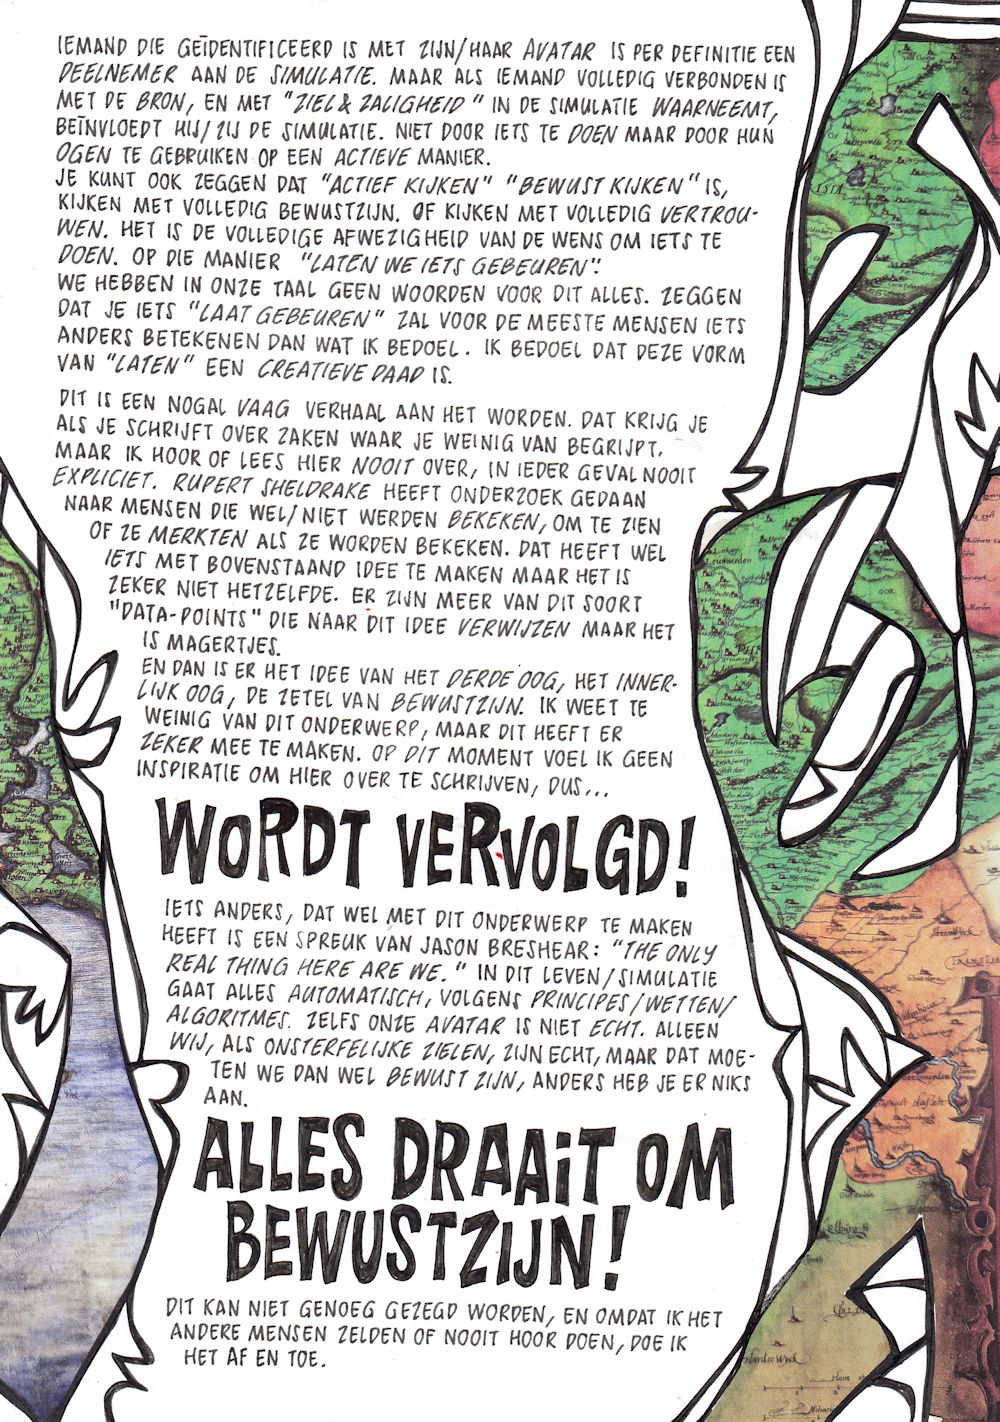 IEMAND DIE GEÏDENTIFICEERD IS MET ZIJN/HAAR AVATAR IS PER DEFINITIE EEN
DEELNEMER AAN DE SIMULATIE. MAAR ALS IEMAND VOLLEDIG VERBONDEN IS
MET DE BRON, EN MET "ZIEL & ZALIGHEID" IN DE SIMULATIE WAARNEEMT,
BEÏNVLOEDT HIJ/ZIJ DE SIMULATIE. NIET DOOR IETS TE DOEN MAAR DOOR HUN
OGEN TE GEBRUIKEN OP EEN ACTIEVE MANIER.
JE KUNT OOK ZEGGEN DAT "ACTIEF KIJKEN" "BEWUST KIJKEN" IS,
KIJKEN MET VOLLEDIG BEWUSTZIJN. OF KIJKEN MET VOLLEDIG VERTROU-
WEN. HET IS DE VOLLEDIGE AFWEZIGHEID VAN DE WENS OM IETS TE
DOEN. OP DIE MANIER "LATEN WE IETS GEBEUREN".
WE HEBBEN IN ONZE TAAL GEEN WOORDEN VOOR DIT ALLES. ZEGGEN
DAT JE IETS "LAAT GEBEUREN" ZAL VOOR DE MEESTE MENSEN IETS
ANDERS BETEKENEN DAN WAT IK BEDOEL. IK BEDOEL DAT DEZE VORM
VAN "LATEN" EEN CREATIEVE DAAD IS.
DIT IS EEN NOGAL VAAG VERHAAL AAN HET WORDEN. DAT KRIJG JE
ALS JE SCHRIJFT OVER ZAKEN WAAR JE WEINIG VAN BEGRIJPT.
MAAR IK HOOR OF LEES HIER NOOIT OVER, IN IEDER GEVAL NOOIT
EXPLICIET. RUPERT SHELDRAKE HEEFT ONDERZOEK GEDAAN
NAAR MENSEN DIE WEL/NIET WERDEN BEKEKEN, OM TE ZIEN
OF ZE MERKTEN ALS ZE WORDEN BEKEKEN. DAT HEEFT WEL
IETS MET BOVENSTAAND IDEE TE MAKEN MAAR HET IS
ZEKER NIET HETZELFDE. ER ZIJN MEER VAN DIT SOORT
"DATA-POINTS" DIE NAAR DIT IDEE VERWIJZEN MAAR HET
IS MAGERTJES.
EN DAN IS ER HET IDEE VAN HET DERDE OOG, HET INNER-
LIJK OOG, DE ZETEL VAN BEWUSTZIJN. IK WEET TE
WEINIG VAN DIT ONDERWERP, MAAR DIT HEEFT ER
ZEKER MEE TE MAKEN. OP DIT MOMENT VOEL IK GEEN
INSPIRATIE OM HIER OVER TE SCHRIJVEN, DUS...
WORDT VERVOLGD!
IETS ANDERS, DAT WEL MET DIT ONDERWERP TE MAKEN
HEEFT IS EEN SPREUK VAN JASON BRESHEAR: "THE ONLY
REAL THING HERE ARE WE." IN DIT LEVEN/SIMULATIE
GAAT ALLES AUTOMATISCH, VOLGENS PRINCIPES/WETTEN/
ALGORITMES. ZELFS ONZE AVATAR IS NIET ECHT. ALLEEN
WIJ, ALS ONSTERFELIJKE ZIELEN, ZIJN ECHT, MAAR DAT MOE-
TEN WE DAN WEL BEWUST ZIJN, ANDERS HEB JE ER NIKS
AAN.
ALLES DRAAIT OM
BEWUSTZIJN!
DIT KAN NIET GENOEG GEZEGD WORDEN, EN OMDAT IK HET
ANDERE MENSEN ZELDEN OF NOOIT HOOR DOEN, DOE IK
HET AF EN TOE.